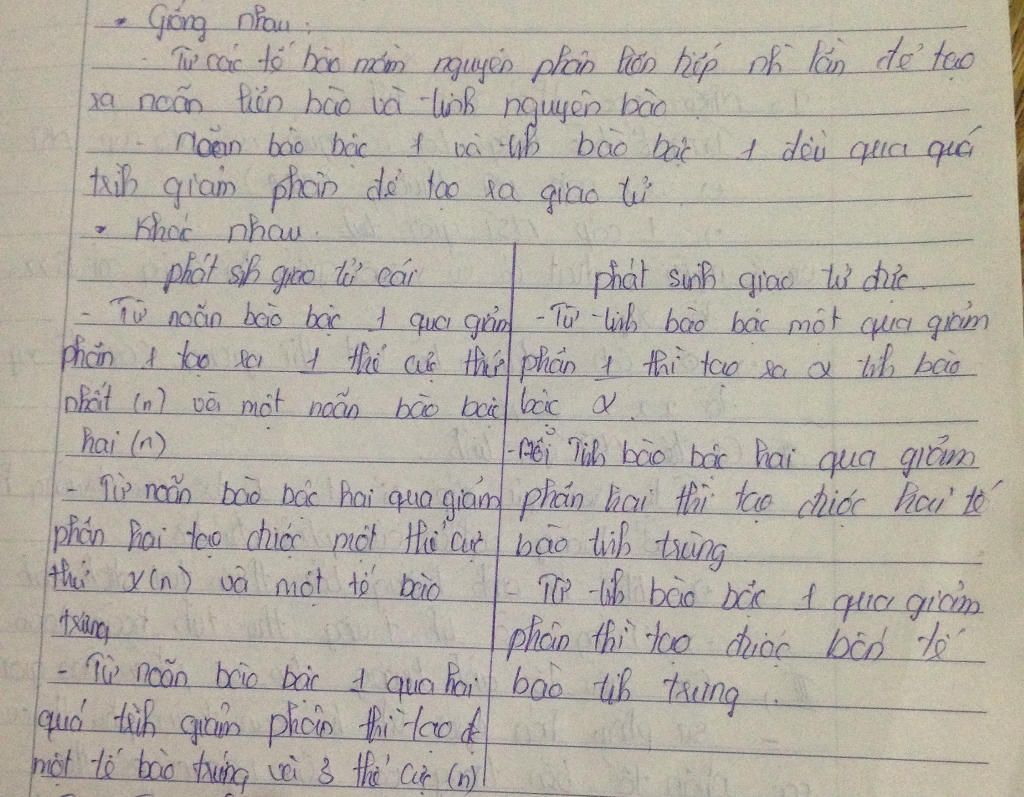 • Giống nhau:
- Từ các tế bào mầm nguyên phân liên tiếp nh lần để tạo
ra noãn tiên bào và tinh nguyên bào
- Noãn bào bậc 1 và tih bào bậc 1 đều qua quá
trih giảm phân để tạo ra giao tử.
• Khác nhau.
phát sih giao tử cái
- Từ noãn bào bậc 1 qua giảm
phân 1 tạo ra 1 thể cực thứ
nhất (n) và một noãn bào bậc
hai (n)
- Từ noãn bào bậc hai qua giảm
phân hai tạo được một thể cực
thứ 2(n) và một tế bào
trứng
- Từ noãn bào bậc 1 qua hai
quá trih giảm phân thì tạo đc
một tế bào trứng và 3 thể cực (n)
phát sinh giao tử đực.
- Từ tinh bào bậc một qua giảm
phân 1 thì tạo ra 2 tih bào
bậc 2.
- Mỗi Tinh bào bậc hai qua giảm
phân hai thì tạo được hai tế
bào tinh trùng
Từ tih bào bậc 1 qua giảm
phân thì tạo được bốn tế
bào tih trùng.